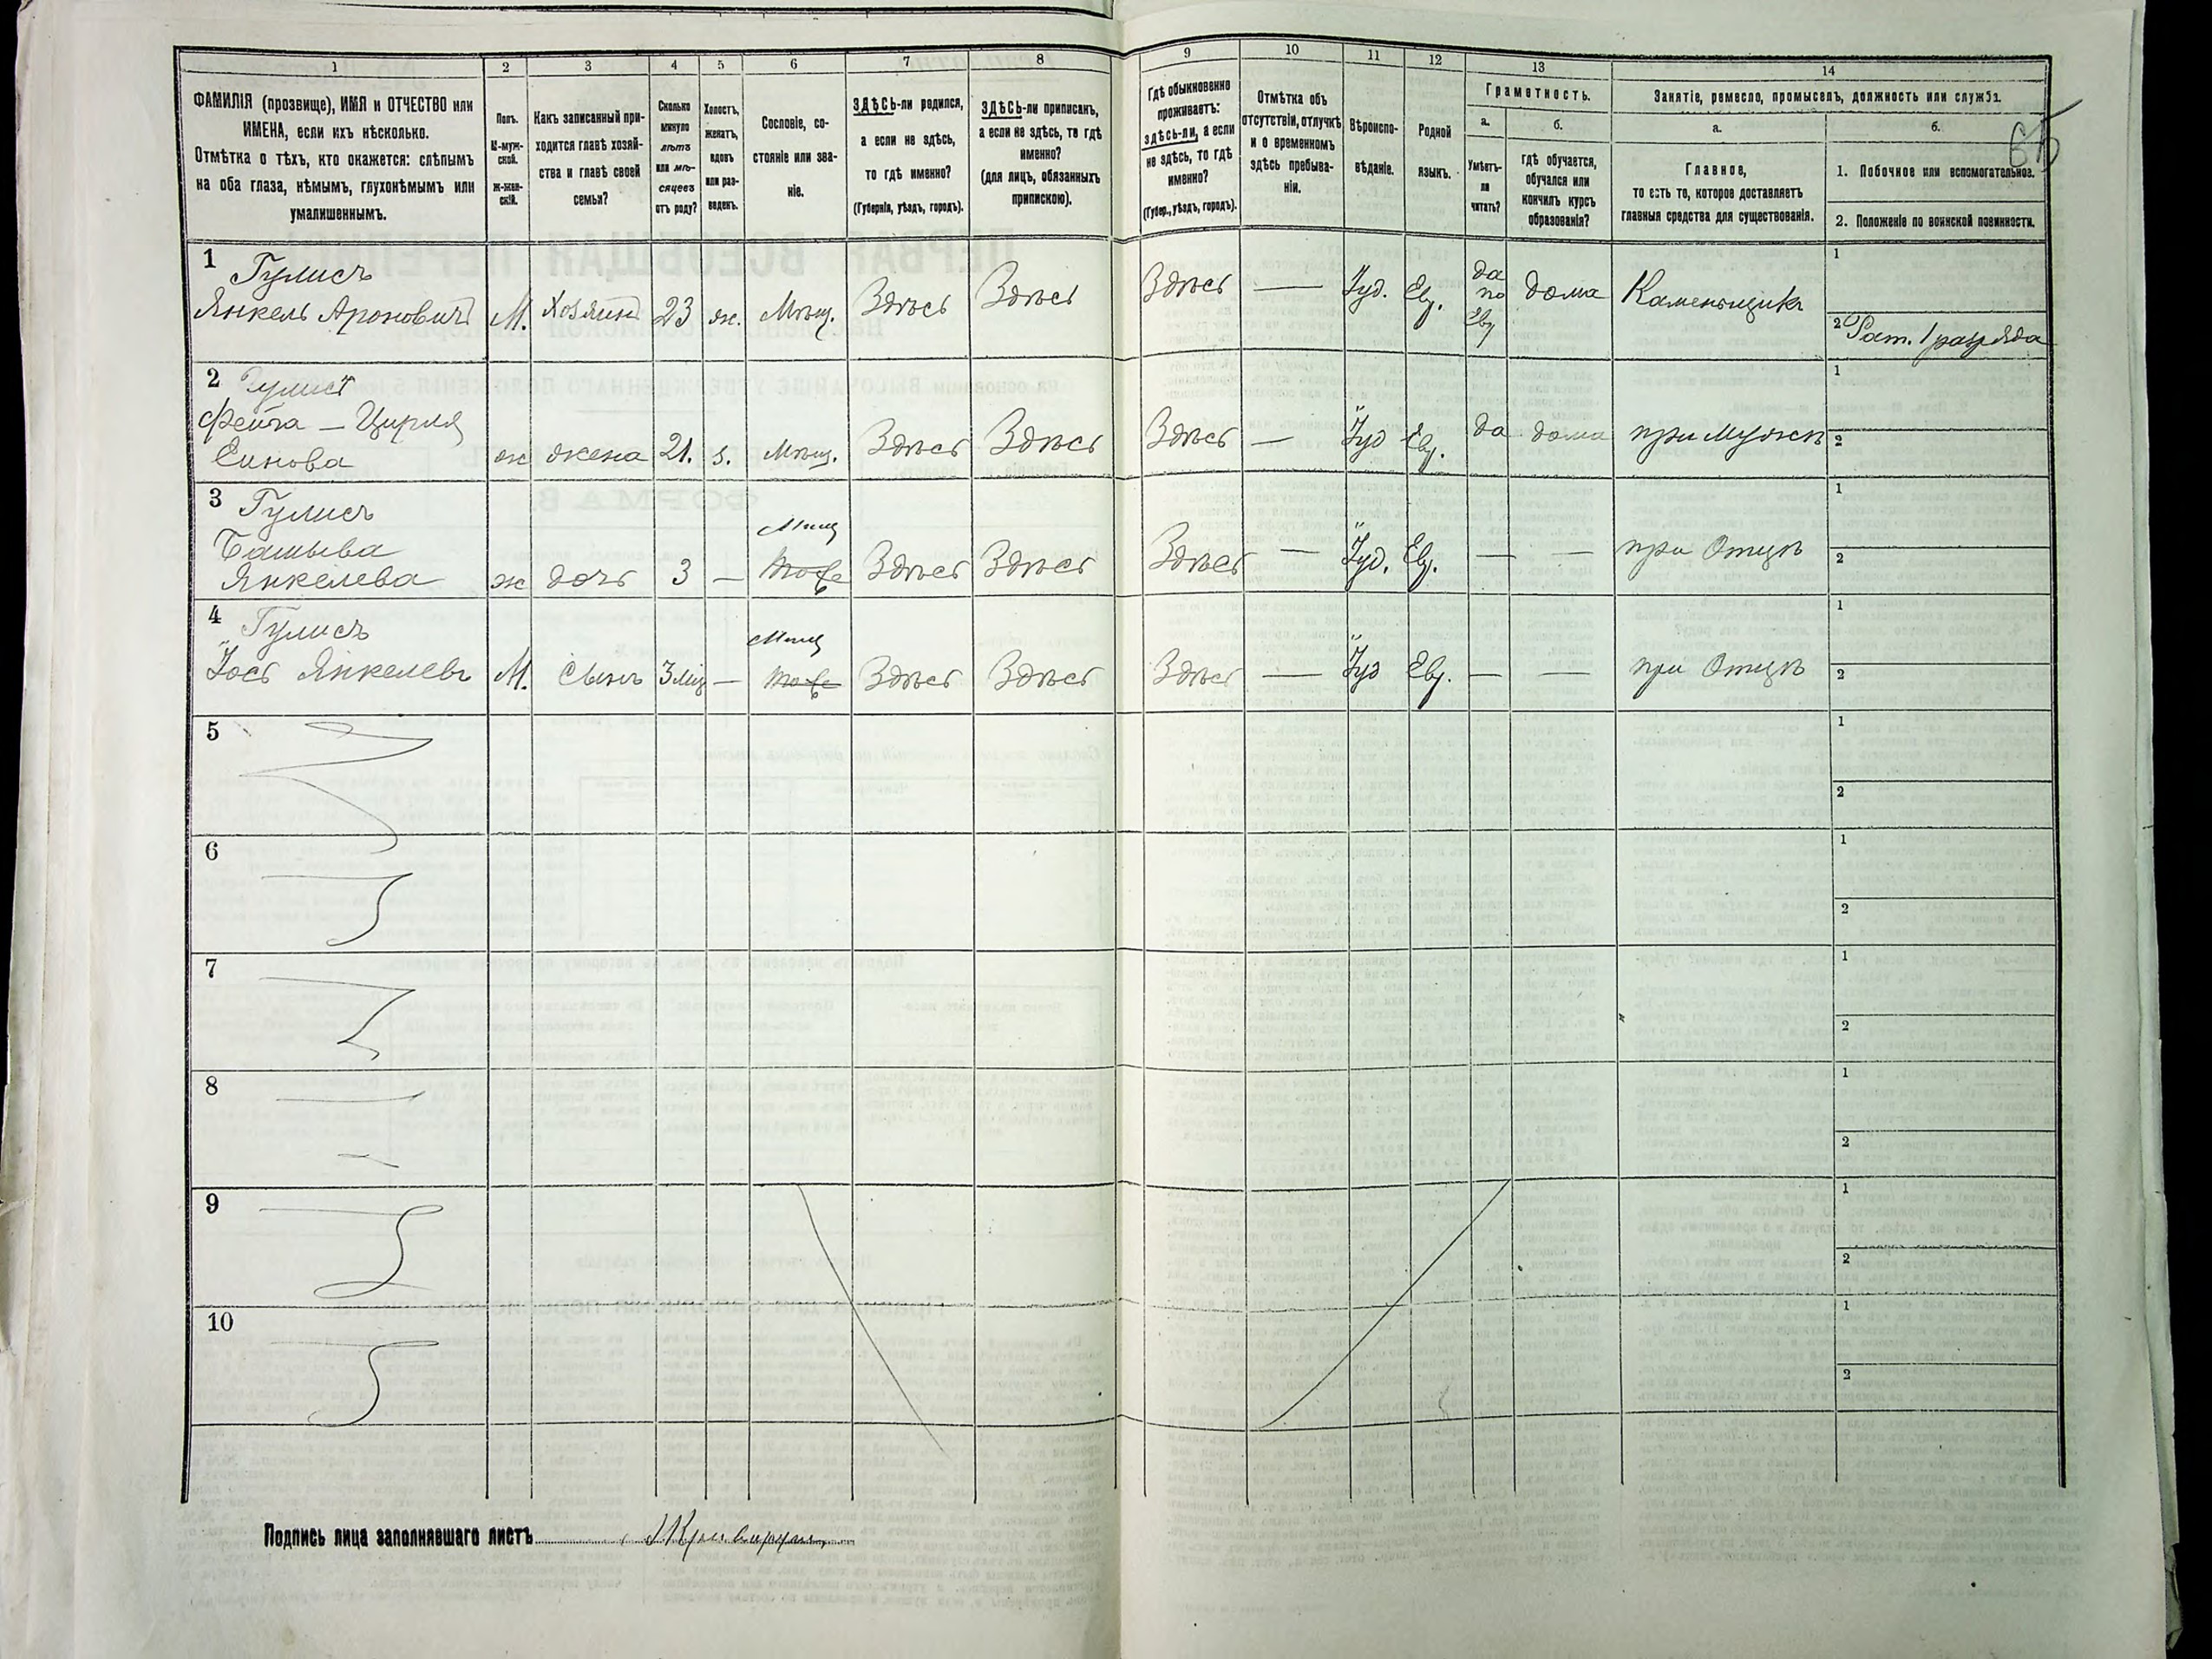 1 2 3 4 5 6 7 8 9 10 11 12 13 14
ФАМИЛІЯ (прозвище), ИМЯ и ОТЧЕСТВО или
ИМЕНА, если ихъ нѣсколько.
Отмѣтка о тѣхъ, кто окажется: слѣпымъ
на оба глаза, нѣмымъ, глухонѣмымъ или
умалишеннымъ.
Полъ.
М-муж-
ской.
Ж-жен-
скій.
Какъ записанный при-
ходится главѣ хозяй-
ства и главѣ своей
семьи?
Сколько
минуло
лѣтъ
или мѣ-
сяцевъ
отъ роду?
Холостъ,
женатъ,
вдовъ
или раз-
веденъ.
Сословіе, со-
стояніе или зва-
ніе.
ЗДѢСЬ-ли родился,
а если не здѣсь,
то гдѣ именно?
(Губернія, уѣздъ, городъ).
ЗДѢСЬ-ли приписанъ,
а если не здѣсь, то гдѣ
именно?
(для лицъ, обязанныхъ
припискою).
Гдѣ обыкновенно
проживаетъ:
здѣсь-ли, а если
не здѣсь, то гдѣ
именно?
(Губер., уѣздъ, городъ).
Отмѣтка объ
отсутствіи, отлучкѣ
и о временномъ
здѣсь пребыва-
ніи.
Вѣроиспо-
вѣданіе.
Родной
языкъ.
Грамотность.
а.
Умѣетъ-
ли
читать?
б.
гдѣ обучается,
обучался или
кончилъ курсъ
образованія?
Занятіе, ремесло, промыселъ, должность или служба.
а.
Главное,
то есть то, которое доставляетъ
главныя средства для существованія.
б.
1. Побочное или вспомогательное.
2. Положеніе по воинской повинности.
1 Гулисъ
Янкель Ароновичъ М. Хозяинъ 23 ж. Мѣщ. Здѣсь Здѣсь Здѣсь — Іуд. Евр. да по Евр дома Каменьщикъ
1
2 Рат. 1 разряда
2 Гулисъ
Фейга — Цирля
Еинова ж жена 21. з. Мѣщ. Здѣсь Здѣсь Здѣсь — Іуд Евр. да дома при Мужѣ
1
2
3 Гулисъ
Башьева
Янкелева ж дочь 3 — Мѣщ тоже Здѣсь Здѣсь Здѣсь — Іуд. Евр. — — при Отцѣ
1
2
4 Гулисъ
Іось Янкелевъ М. Сынъ 3 мѣц — Мѣщ тоже Здѣсь Здѣсь Здѣсь — Іуд Евр. — — при Отцѣ
1
2
5
1
2
6
1
2
7
1
2
8
1
2
9
1
2
10
1
2
Подпись лица заполнявшаго листъ